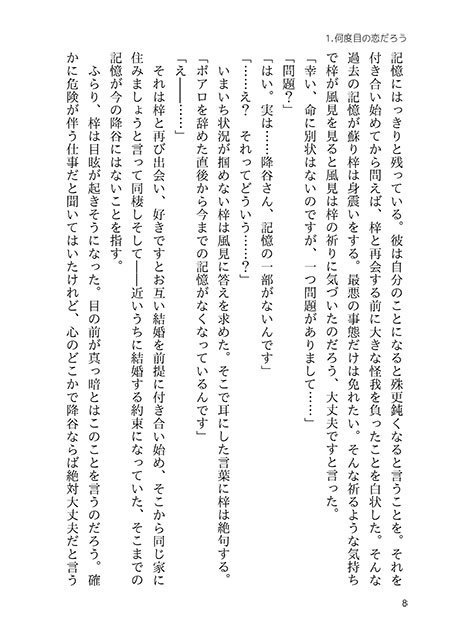 1.何度目の恋だろう
記憶にはっきりと残っている。彼は自分のことになると殊更鈍くなると言うことを。それを
付き合い始めてから問えば、梓と再会する前に大きな怪我を負ったことを白状した。そんな
過去の記憶が蘇り梓は身震いをする。最悪の事態だけは免れたい。そんな祈るような気持ち
で梓が風見を見ると風見は梓の祈りに気づいたのだろう、大丈夫ですと言った。
「幸い、命に別状はないのですが、一つ問題がありまして……」
「問題？」
「はい。実は……降谷さん、記憶の一部がないんです」
「……え？　それってどういう……？」
いまいち状況が掴めない梓は風見に答えを求めた。そこで耳にした言葉に梓は絶句する。
「ポアロを辞めた直後から今までの記憶がなくなっているんです」
「え――……」
それは梓と再び出会い、好きですとお互い結婚を前提に付き合い始め、そこから同じ家に
住みましょうと言って同棲しそして――近いうちに結婚する約束になっていた、そこまでの
記憶が今の降谷にはないことを指す。
ふらり、梓は目眩が起きそうになった。目の前が真っ暗とはこのことを言うのだろう。確
かに危険が伴う仕事だと聞いてはいたけれど、心のどこかで降谷ならば絶対大丈夫だと言う
8